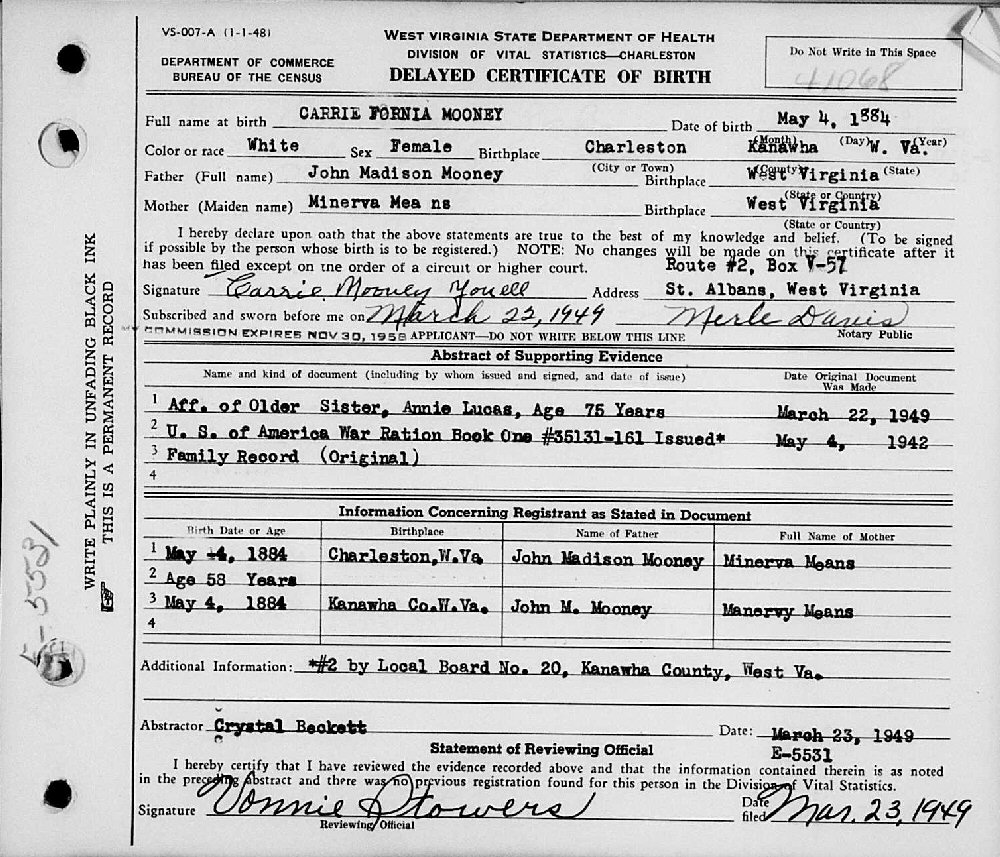 VS-007-A (1-1-48)
WEST VIRGINIA STATE DEPARTMENT OF HEALTH
DIVISION OF VITAL STATISTICS—CHARLESTON
DELAYED CERTIFICATE OF BIRTH
DEPARTMENT OF COMMERCE
BUREAU OF THE CENSUS
Do Not Write in This Space
41068
Full name at birth CARRIE FORNIA MOONEY Date of birth May 4, 1884
(Month) (Day) (Year)
Color or race White Sex Female Birthplace Charleston Kanawha W. Va.
(City or Town) (County) (State)
Father (Full name) John Madison Mooney Birthplace West Virginia
(State or Country)
Mother (Maiden name) Minerva Mea ns Birthplace West Virginia
(State or Country)
I hereby declare upon oath that the above statements are true to the best of my knowledge and belief. (To be signed
if possible by the person whose birth is to be registered.) NOTE: No changes will be made on this certificate after it
has been filed except on the order of a circuit or higher court. Route #2, Box V-57
Signature Carrie Mooney Youell Address St. Albans, West Virginia
Subscribed and sworn before me on March 22, 1949 Merle Davis
Notary Public
COMMISSION EXPIRES NOV 30, 1958 APPLICANT—DO NOT WRITE BELOW THIS LINE
Abstract of Supporting Evidence
Name and kind of document (including by whom issued and signed, and date of issue) Date Original Document
Was Made
1 Aff. of Older Sister, Annie Lucas, Age 75 Years March 22, 1949
2 U. S. of America War Ration Book One #35131-161 Issued* May 4, 1942
3 Family Record (Original)
4
Information Concerning Registrant as Stated in Document
Birth Date or Age Birthplace Name of Father Full Name of Mother
1 May 4, 1884 Charleston,W.Va John Madison Mooney Minerva Means
2 Age 58 Years
3 May 4, 1884 Kanawha Co.W.Va. John M. Mooney Manervy Means
4
Additional Information: *#2 by Local Board No. 20, Kanawha County, West Va.
Abstractor Crystal Beckett Date: March 23, 1949
E-5531
Statement of Reviewing Official
I hereby certify that I have reviewed the evidence recorded above and that the information contained therein is as noted
in the preceding abstract and there was no previous registration found for this person in the Division of Vital Statistics.
Signature Vonnie Stowers Date filed Mar. 23, 1949
Reviewing Official
WRITE PLAINLY IN UNFADING BLACK INK
THIS IS A PERMANENT RECORD
E-5531